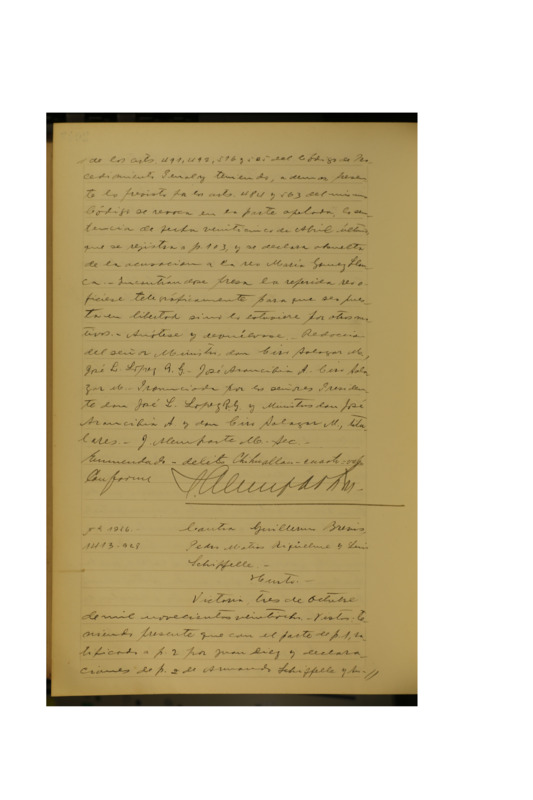 de los arts. 491, 492, 516 y del Código de Pro
cedimiento Penal y teniendo, ademas presen
te lo previsto en los arts. 484 y 503 del mismo
Código se revoca en la parte apelada, la sen
tencia de fecha veintiunco de Abril último
que se registra a p. 103, y se declara absuelta
de la acusacion a la reo Maria Gomez Blan
ca. - Encontrándose presa la referida reo o
fíciese telegráficamente para que sea pues
ta en libertad sino lo estuviere por otros mo
tivos. - Anótese y devuélvase. Redaccion
del señor Ministro, don Ciro Salazar M.,
José L. Lopez R. G. - José Arancibia A. Ciro Sala
zar M. - Pronunciada por los señores Presiden
te don José L. Lopez R. G. y Ministros don José
Arancibia A. y don Ciro Salazar M., titu
lares. - J. Montt M. Sec. -
Enmendado - delito Chihuallan - 
Conforme
Nº 1026.- Contra Guillermo Briones
Pedro Matias Riquelme y Luis
Schiffelle. -
Hurto. -
Victoria, tres de Octubre
de mil novecientos veintiocho. - Vistos: te
niendo presente que con el parte de p. 1, ra
tificado a p. 2 por Juan Diaz y declara
ciones de p. 2 de Armando Schiffelle y